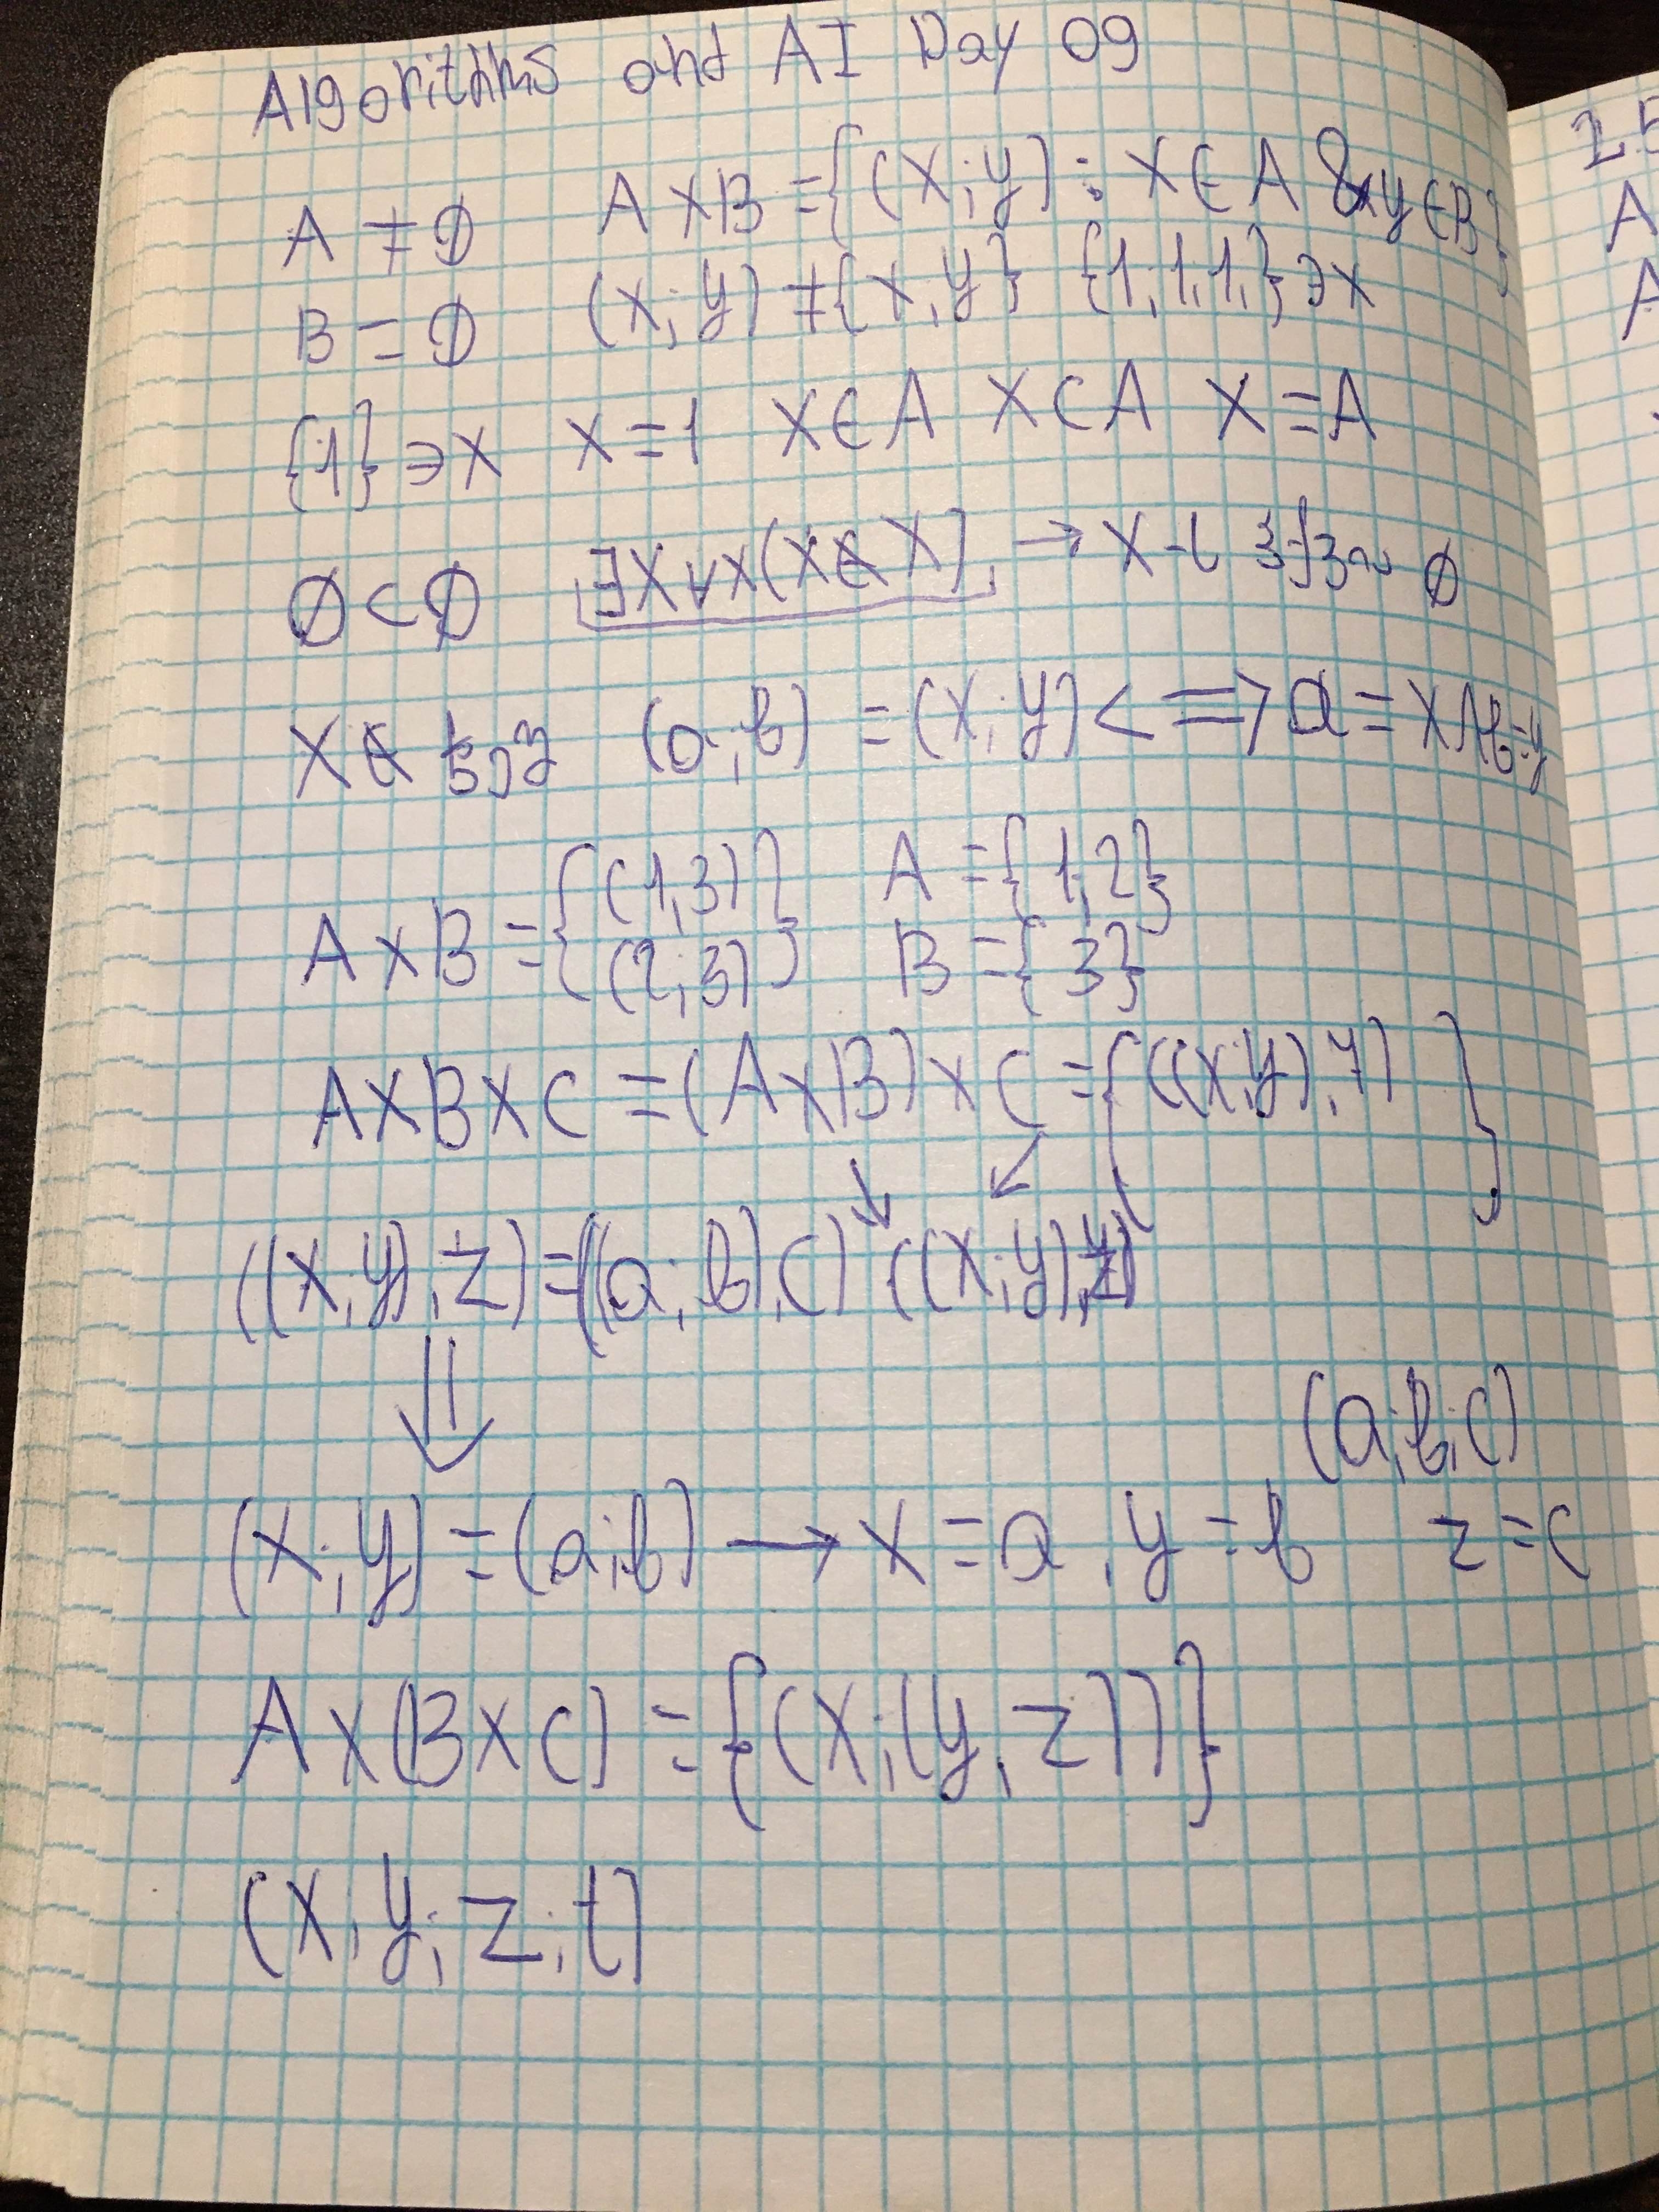 Algorithms and AI Day 09
A ≠ ∅ A × B = {(x;y) : x ∈ A & y ∈ B}
B = ∅ (x;y) ≠ {x,y} {1,1,1,} ∋ x
{1} ∋ x x = 1 x ∈ A x ⊂ A x = A
∅ ⊂ ∅ ∃X∀x(x∉X) → X-ს ∅
x ∉ (a;b) = (x;y) <=> a = x ∧ b=y
A × B = {(1,3) A = {1,2}
(2,3)} B = {3}
A × B × C = (A × B) × C = {((x,y),z) }
((x,y),z) = ((a;b),c) ((x;y),z)
(a;b;c)
(x;y) = (a;b) → x = a, y = b z = c
A × (B × C) = {(x;(y,z))}
(x,y;z;t)
2.5
A
A